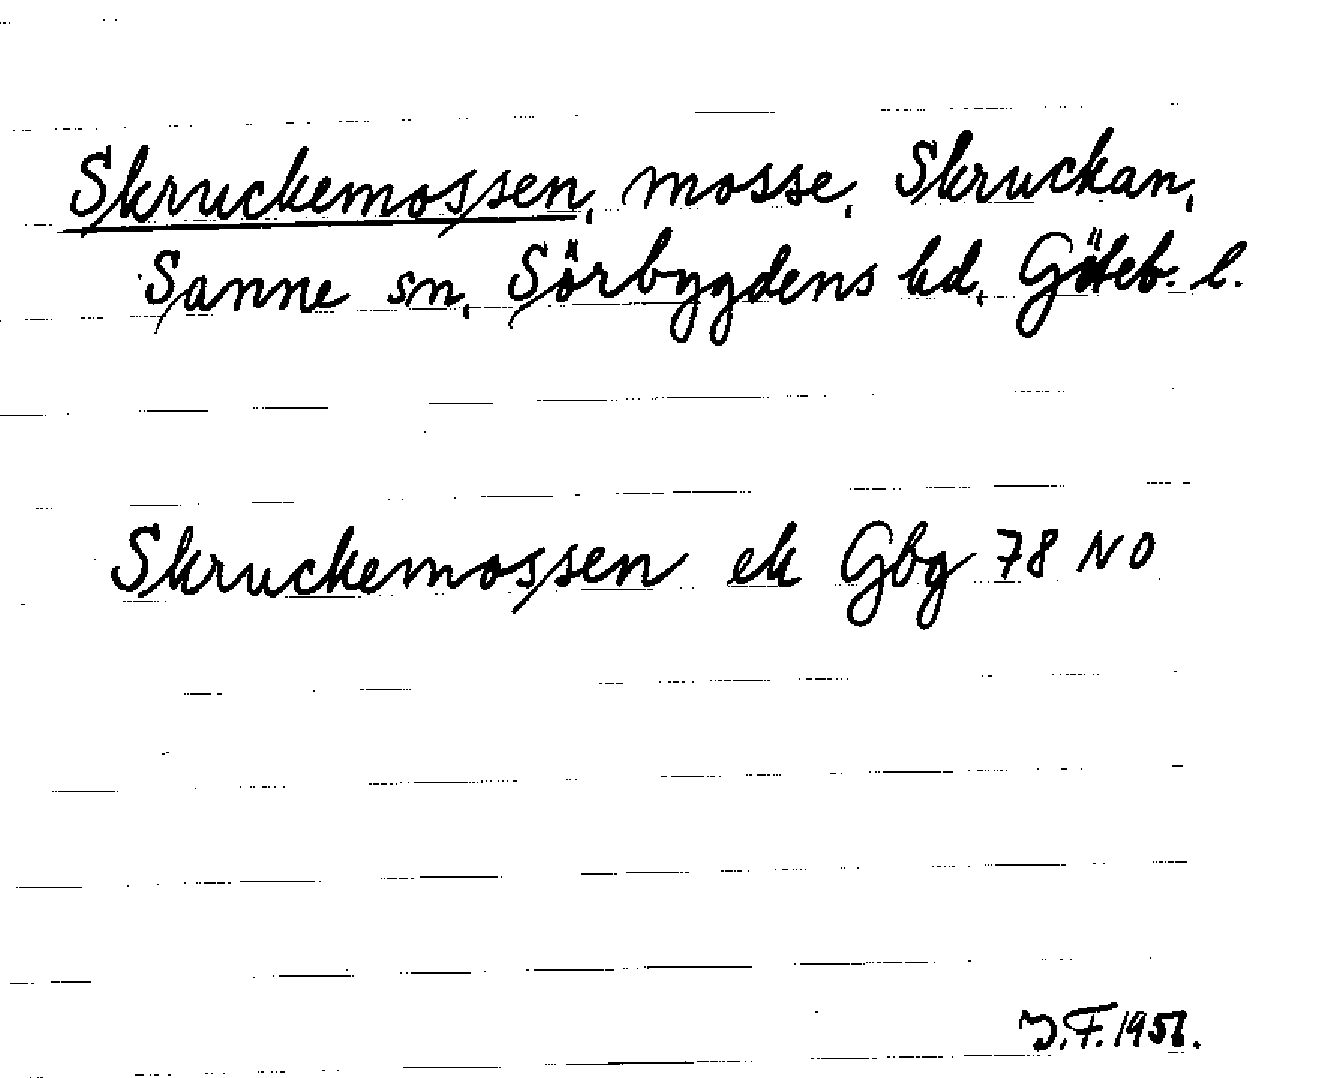 Skruckemossen, mosse, Skruckan,
Sanne sn, Sörbygdens hd, Göteb. l.
Skruckemossen ek Gbg 78 NO